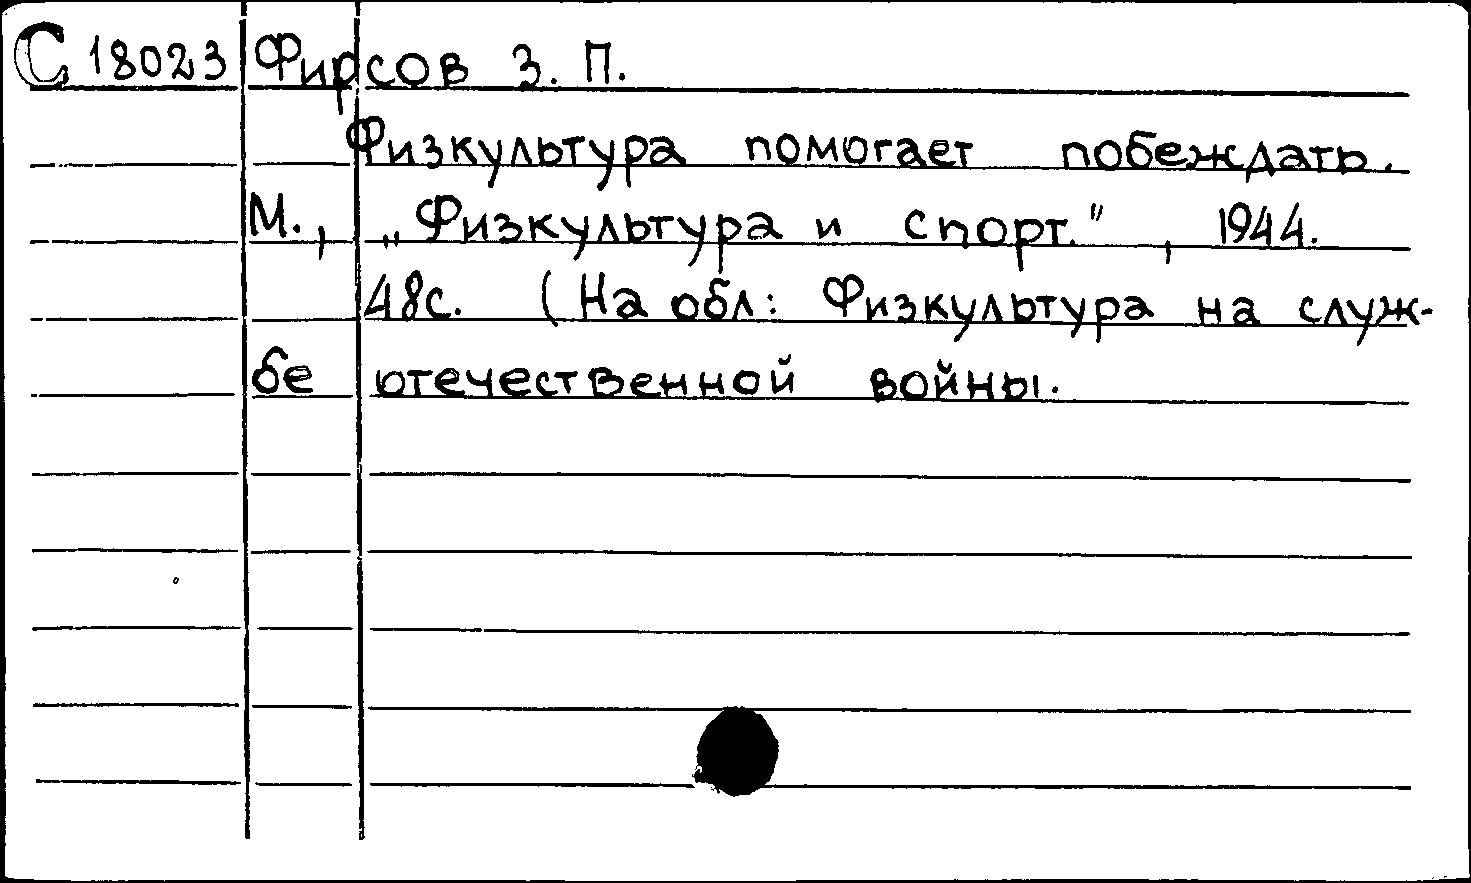 С 18023 Фирсов З. П.
Физкультура помогает побеждать.
М., „Физкультура и спорт.", 1944.
48с. (На обл: Физкультура на служ-
бе отечественной войны.